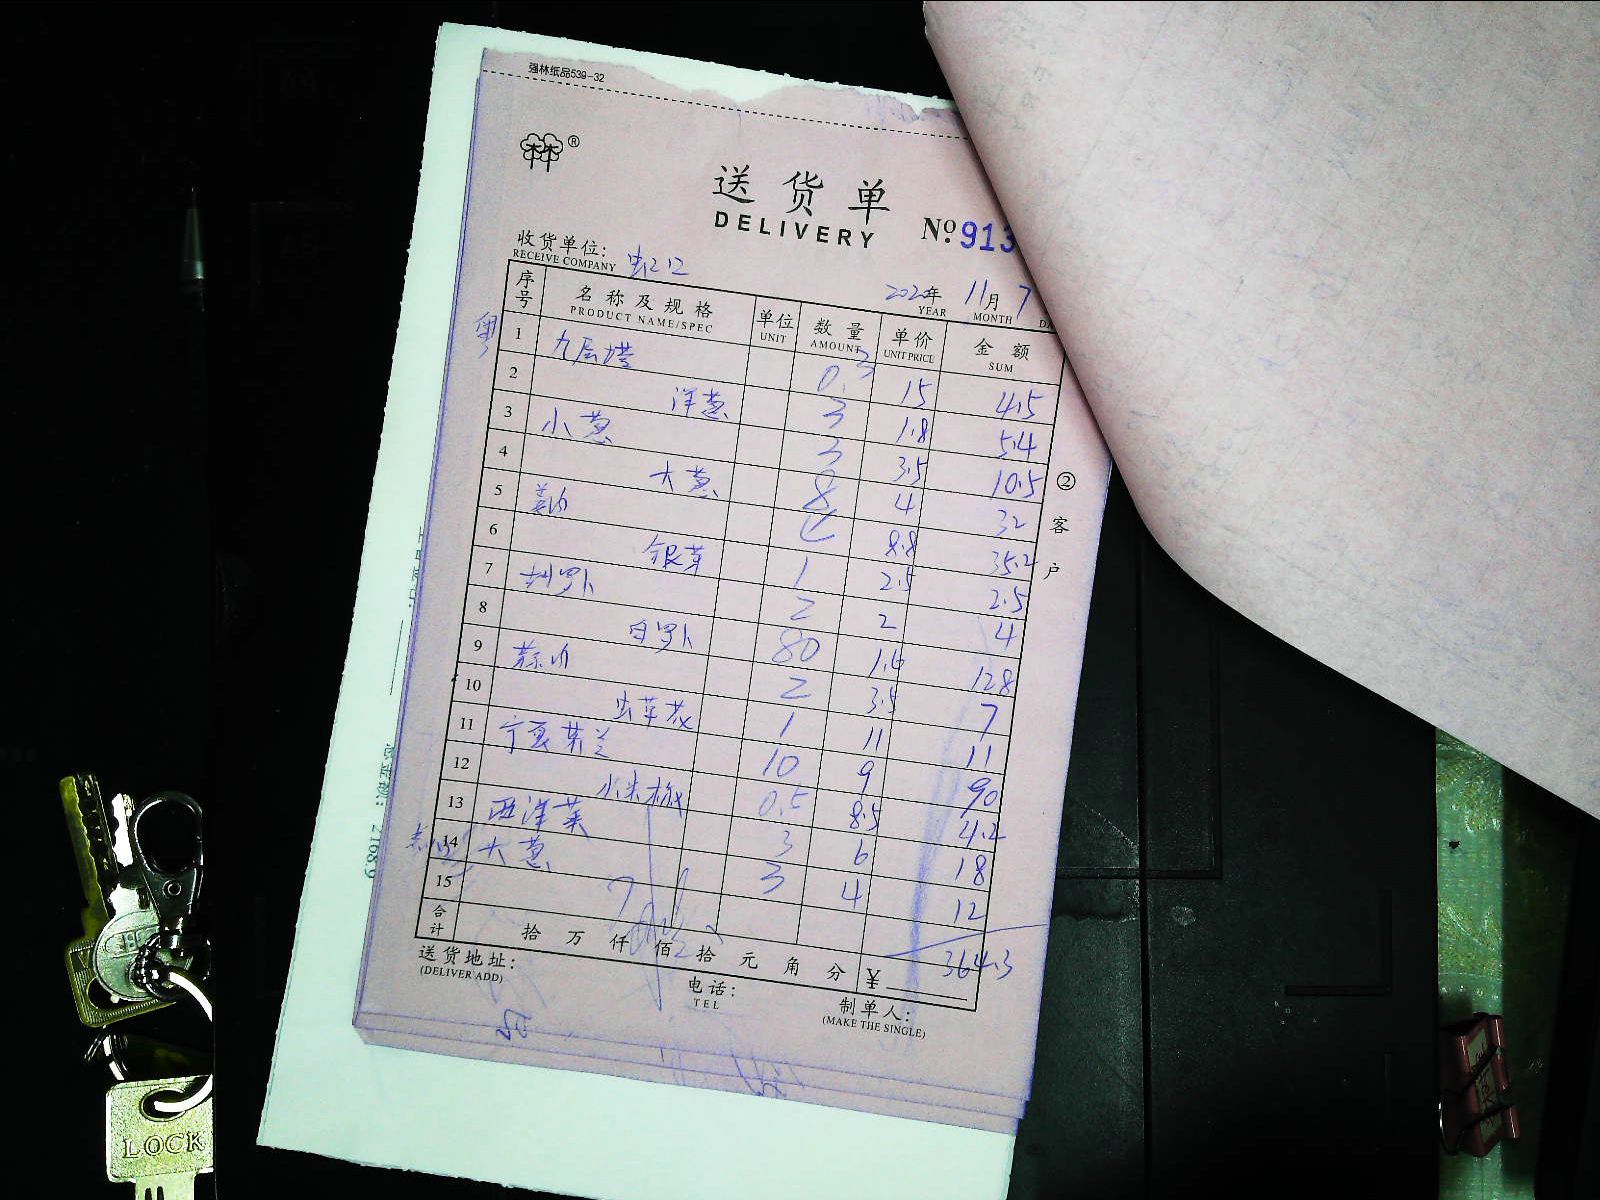 强林纸品539-32
®
送货单
DELIVERY
No. 913
收货单位:
RECEIVE COMPANY
2020年 11月 7
YEAR MONTH DA
序号 名称及规格 单位 数量 单价 金额
PRODUCT NAME/SPEC UNIT AMOUNT UNIT PRICE SUM
1 九层塔 0.3 15 4.5
2 洋葱 3 1.8 5.4
3 小葱 3 3.5 10.5
4 大葱 8 4 32
5 8.8 35.2
6 银芽 1 2.5 2.5
7 胡罗卜 2 2 4
8 白罗卜 80 1.6 128
9 2 3.5 7
10 虫草花 1 11 11
11 宁夏菜兰 10 9 90
12 小米椒 0.5 8.5 4.2
13 西洋菜 3 6 18
14 大葱 3 4 12
15
合计 拾 万 仟 佰 拾 元 角 分 ¥ 364.3
送货地址:
(DELIVER ADD)
电话:
TEL
制单人:
(MAKE THE SINGLE)
②客户
总金额: 2168.9
LOCK